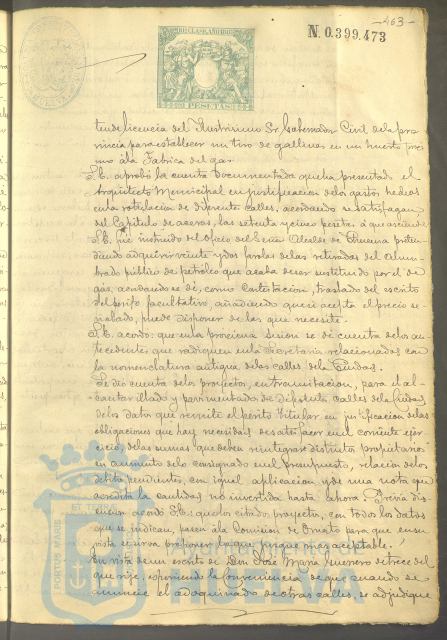 -463-
N. 0.399.473
PESETAS
tende licencia del Ilustrisimo Sr Gobernador Civil de la pro
vincia para establecer un tiro de gallinas en un huerto proxi
mo á la Fabrica del gas
S.E. aprobó la cuenta documentada que ha presentado el
Arquitecto Municipal en justificacion de los gastos hechos
en la rotulacion de diferentes calles, acordando se satisfagan
del Capitulo de aceras, las setenta y cinco pesetas á que asciende
S.E. fué instruido del oficio del Señor Alcalde de
diendo adquirir veinte y dos farolas de las retiradas del alum
brado público de petróleo que acaba de ser sustituido por el de
gas, acordando se dé, como contestacion, traslado del escrito
del perito facultativo, añadiendo que si acepta el precio se
ñalado, puede disponer de las que necesite.
S.E. acordó: que en la procsima sesion se dé cuenta de los an
tecedentes que radiquen en la Secretaria relacionados con
la nomenclatura antigua de las calles de la Ciudad.
Se dió cuenta de los proyectos, en tramitacion, para el al
cantarillado y pavimentado de distintas calles de la Ciudad,
de los datos que remite el perito titular en justificacion de las
obligaciones que hay necesidad de satisfacer en el corriente ejer
cicio, de las sumas que deben reintegrar distintos propietarios
en aumento de lo consignado en el presupuesto, relacion de los
débitos pendientes, con igual aplicacion y de una nota que
acredita la cantidad no invertida hasta ahora. Previa dis
cusion acordó S.E.: que los citados proyectos, con todos los datos
que se indican, pasen á la Comision de Ornato para que en su
vista se sirva proponer lo que juzgue mas aceptable.
En vista de un escrito de Don José Maria Guerrero de trece del
que rige, esponiendo la conveniencia de que cuando se
anuncie el adoquinado de otras calles, se adjudique
PORTUS MARIS
Ayuntamiento de
HUELVA